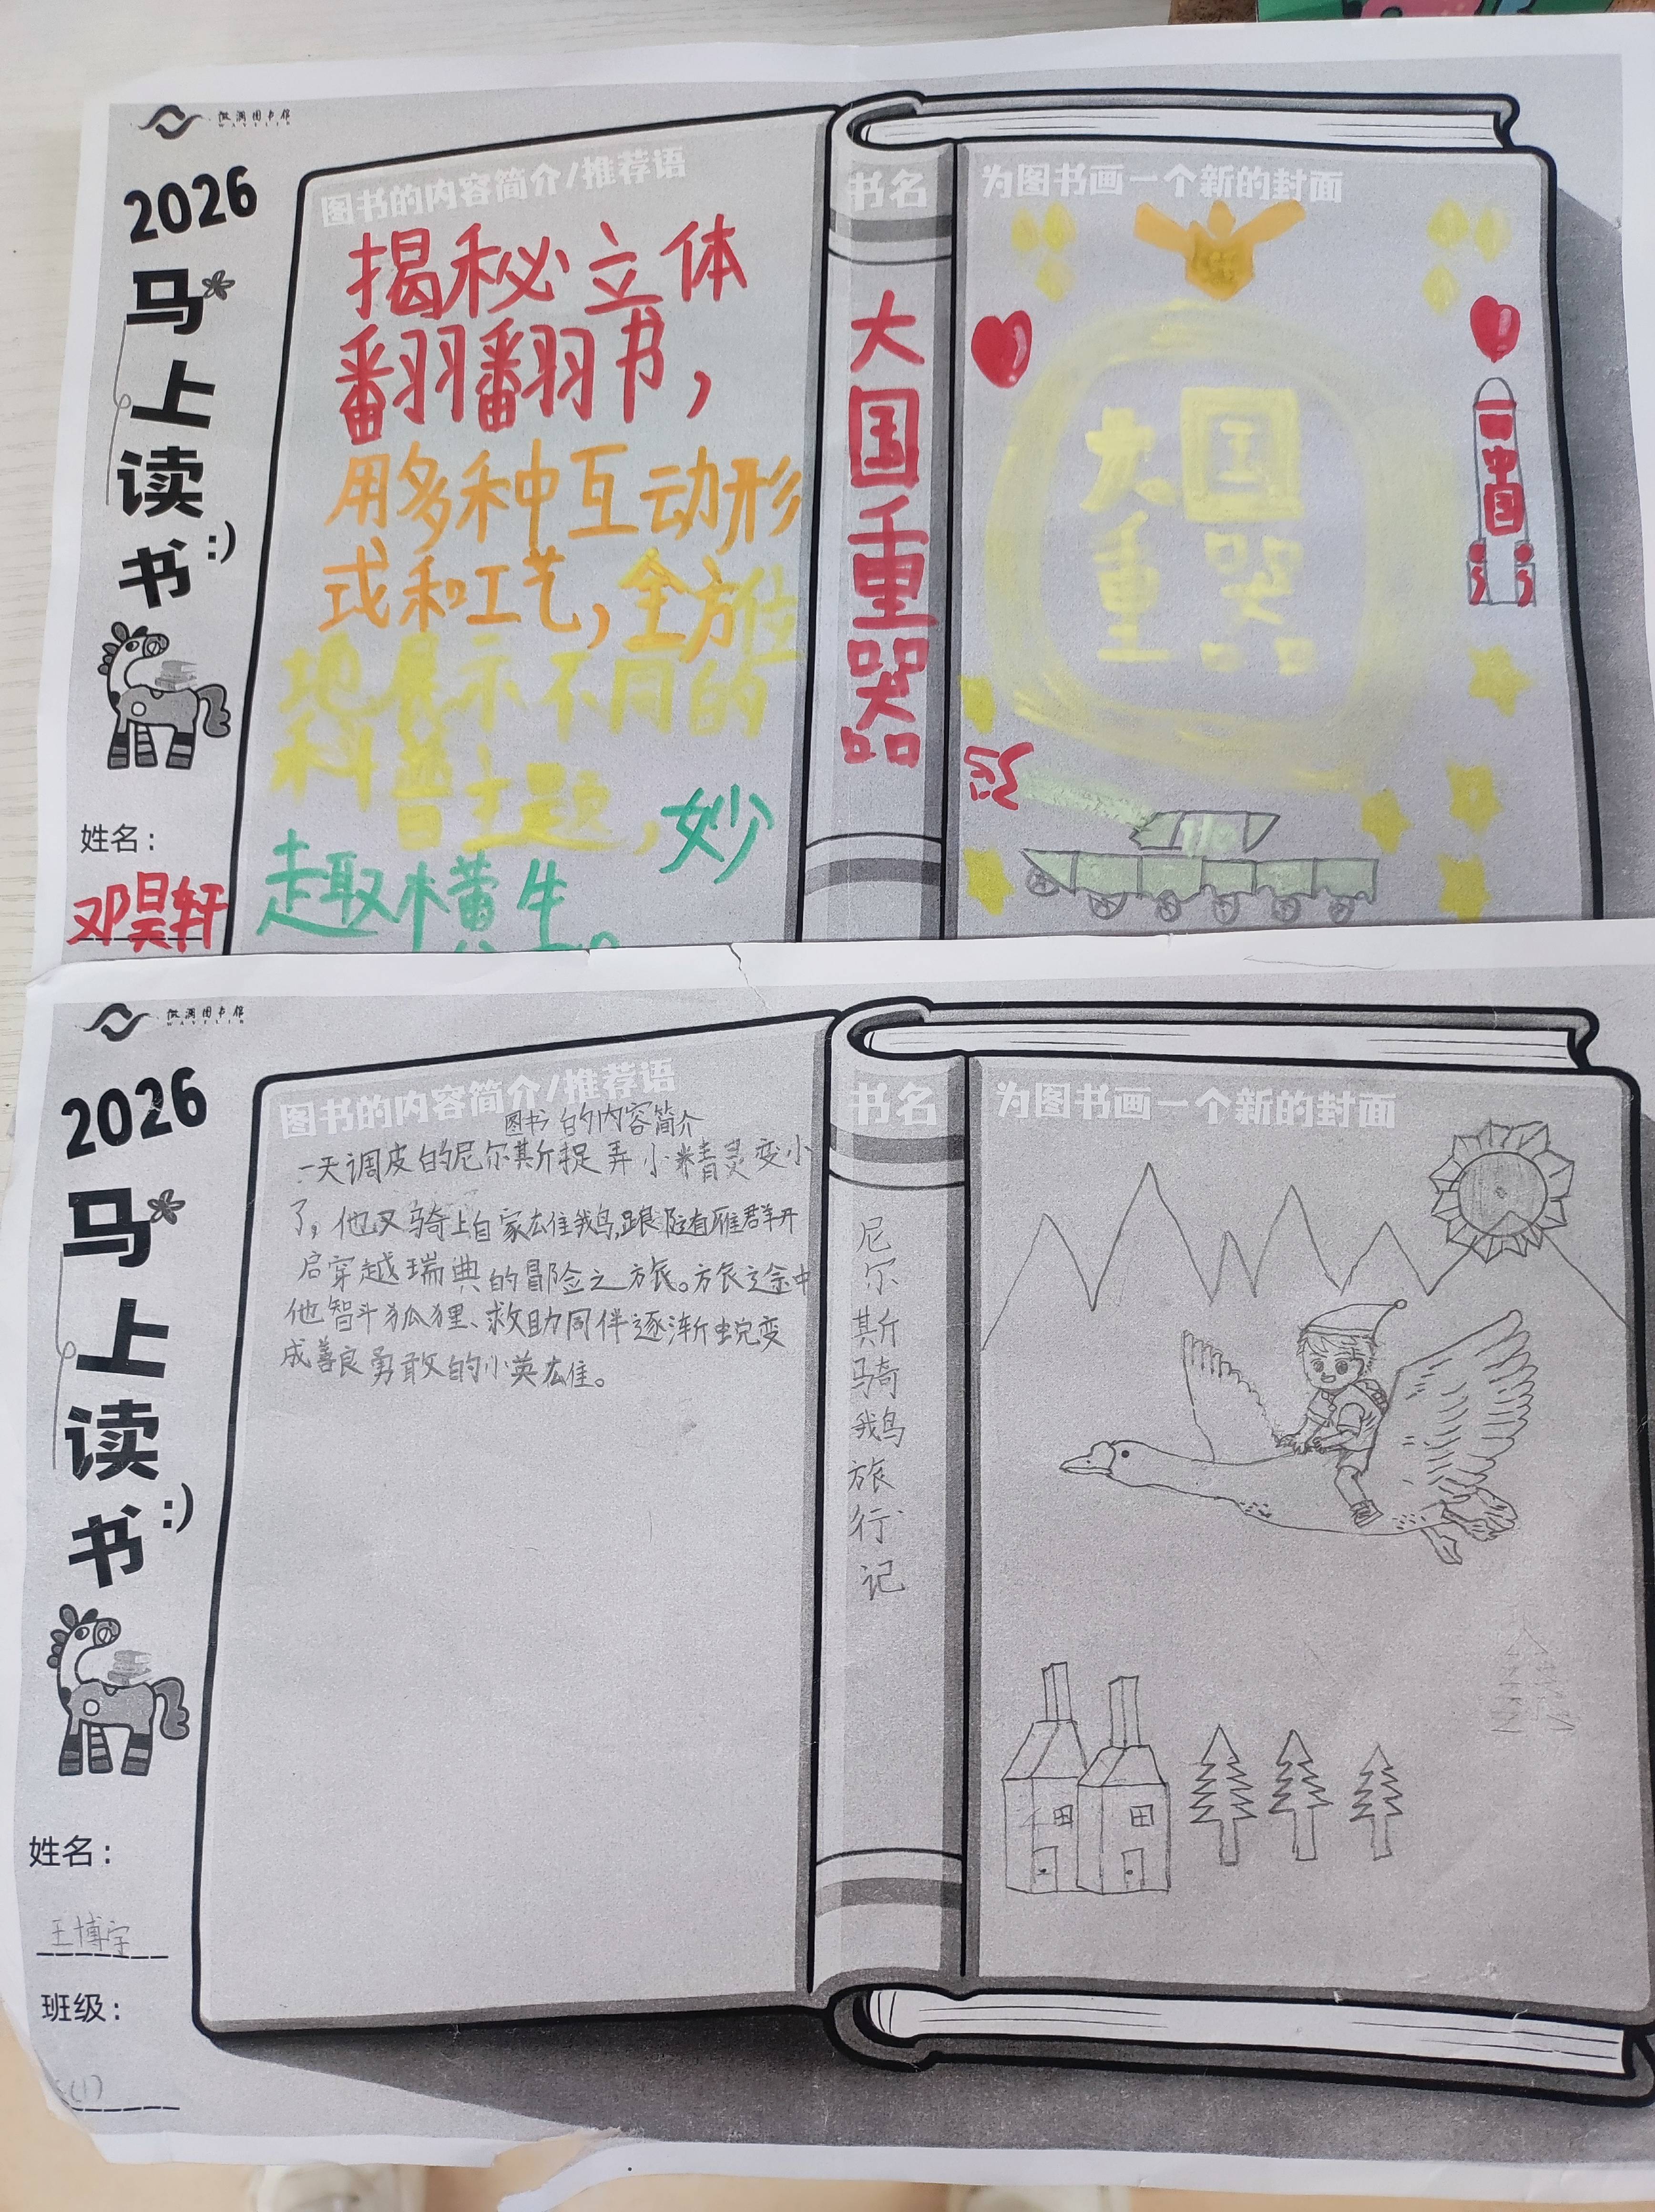 微澜图书馆
WAVELIB
2026
马上读书:)
姓名:
邓昊轩
图书的内容简介/推荐语
揭秘立体
翻翻书,
用多种互动形
式和工艺,全方位
地展示不同的
科普主题,妙
趣横生
书名
大国重器
为图书画一个新的封面
大国
重器
中国
微澜图书馆
WAVELIB
2026
马上读书:)
姓名:
王博宇
班级:
(1)
图书的内容简介/推荐语
图书的内容简介
一天调皮的尼尔斯捉弄小精灵变小
了,他又骑上自家雄鹅,跟随着雁群开
启穿越瑞典的冒险之旅。旅途中
他智斗狐狸、救助同伴逐渐蜕变
成善良勇敢的小英雄。
书名
尼尔斯骑鹅旅行记
为图书画一个新的封面